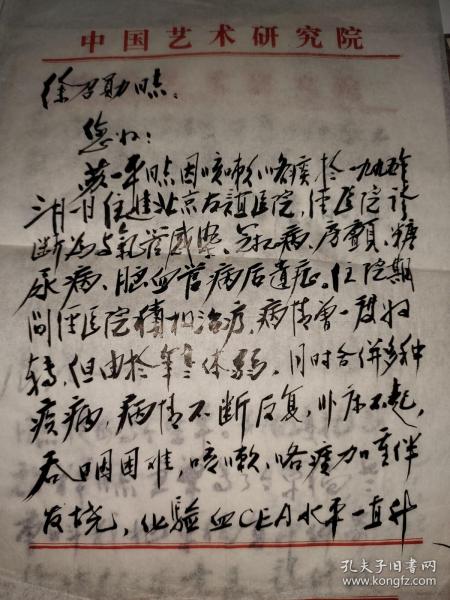 中国艺术研究院
徐 勛同志：
您好：
黄一平同志因咳嗽、咯痰於一九九五年
三月 日住进北京友谊医院，经医院诊
断为 气管感染、冠心病、房颤、糖
尿病、脑血管病后遗症。住院期
间经医院积极治疗，病情曾一度好
转，但由於年老体弱，同时合併多种
疾病，病情不断反复，卧床不起，
吞咽困难，咳嗽、咯痰加重伴
发烧，化验血CEA水平一直升
孔夫子旧书网
www.kongfz.com